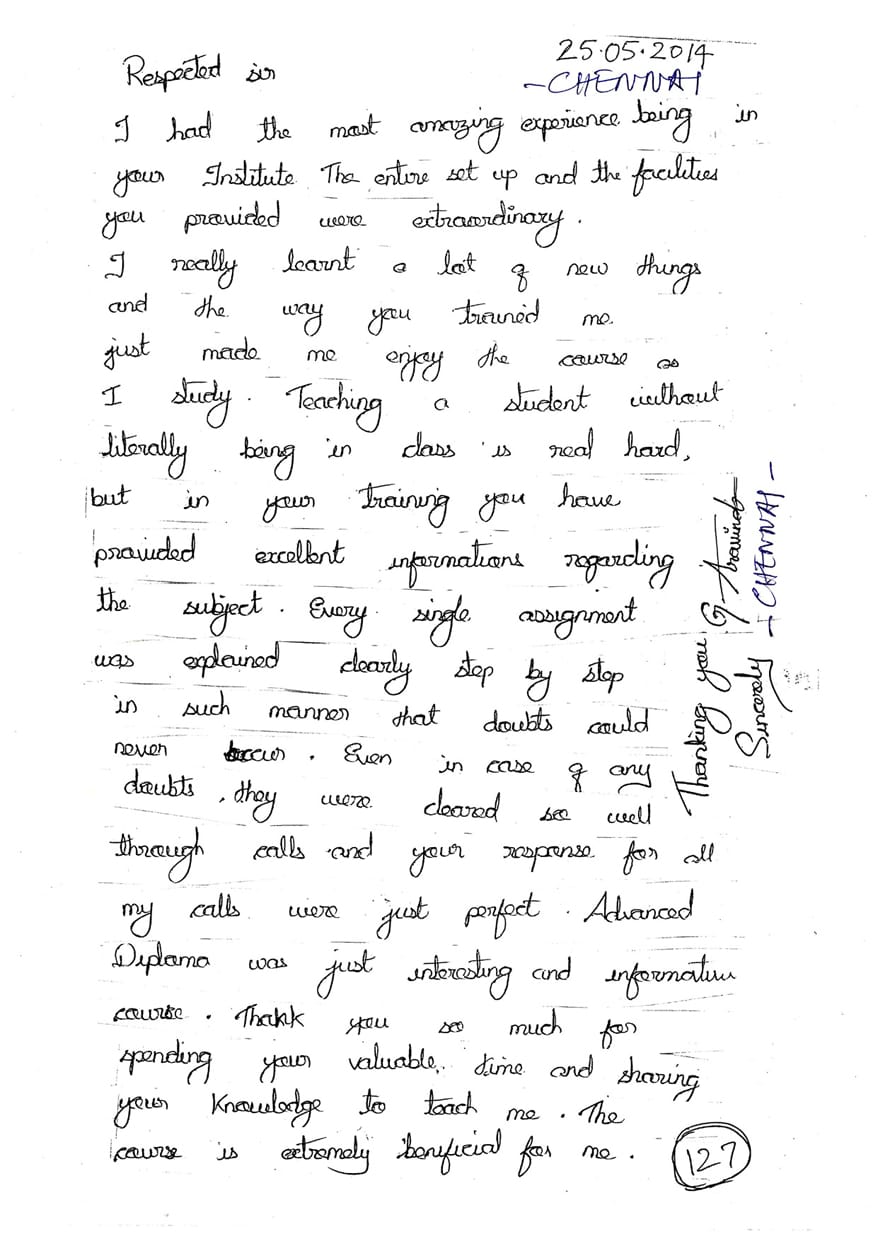 25.05.2014
-CHENNAI
Respected sir
I had the most amazing experience being in
your Institute. The entire set up and the facilities
you provided were extraordinary.
I really learnt a lot of new things
and the way you trained me
just made me enjoy the course as
I study. Teaching a student without
literally being in class is real hard,
but in your training you have
provided excellent informations regarding
the subject. Every single assignment
was explained clearly step by step
in such manner that doubts could
never occur. Even in case of any
doubts, they were cleared so well
through calls and your response for all
my calls were just perfect. Advanced
Diploma was just interesting and informative
course. Thank you so much for
spending your valuable time and sharing
your knowledge to teach me. The
course is extremely beneficial for me.
127
Thanking you
G Aravind
Sincerely
-CHENNAI-